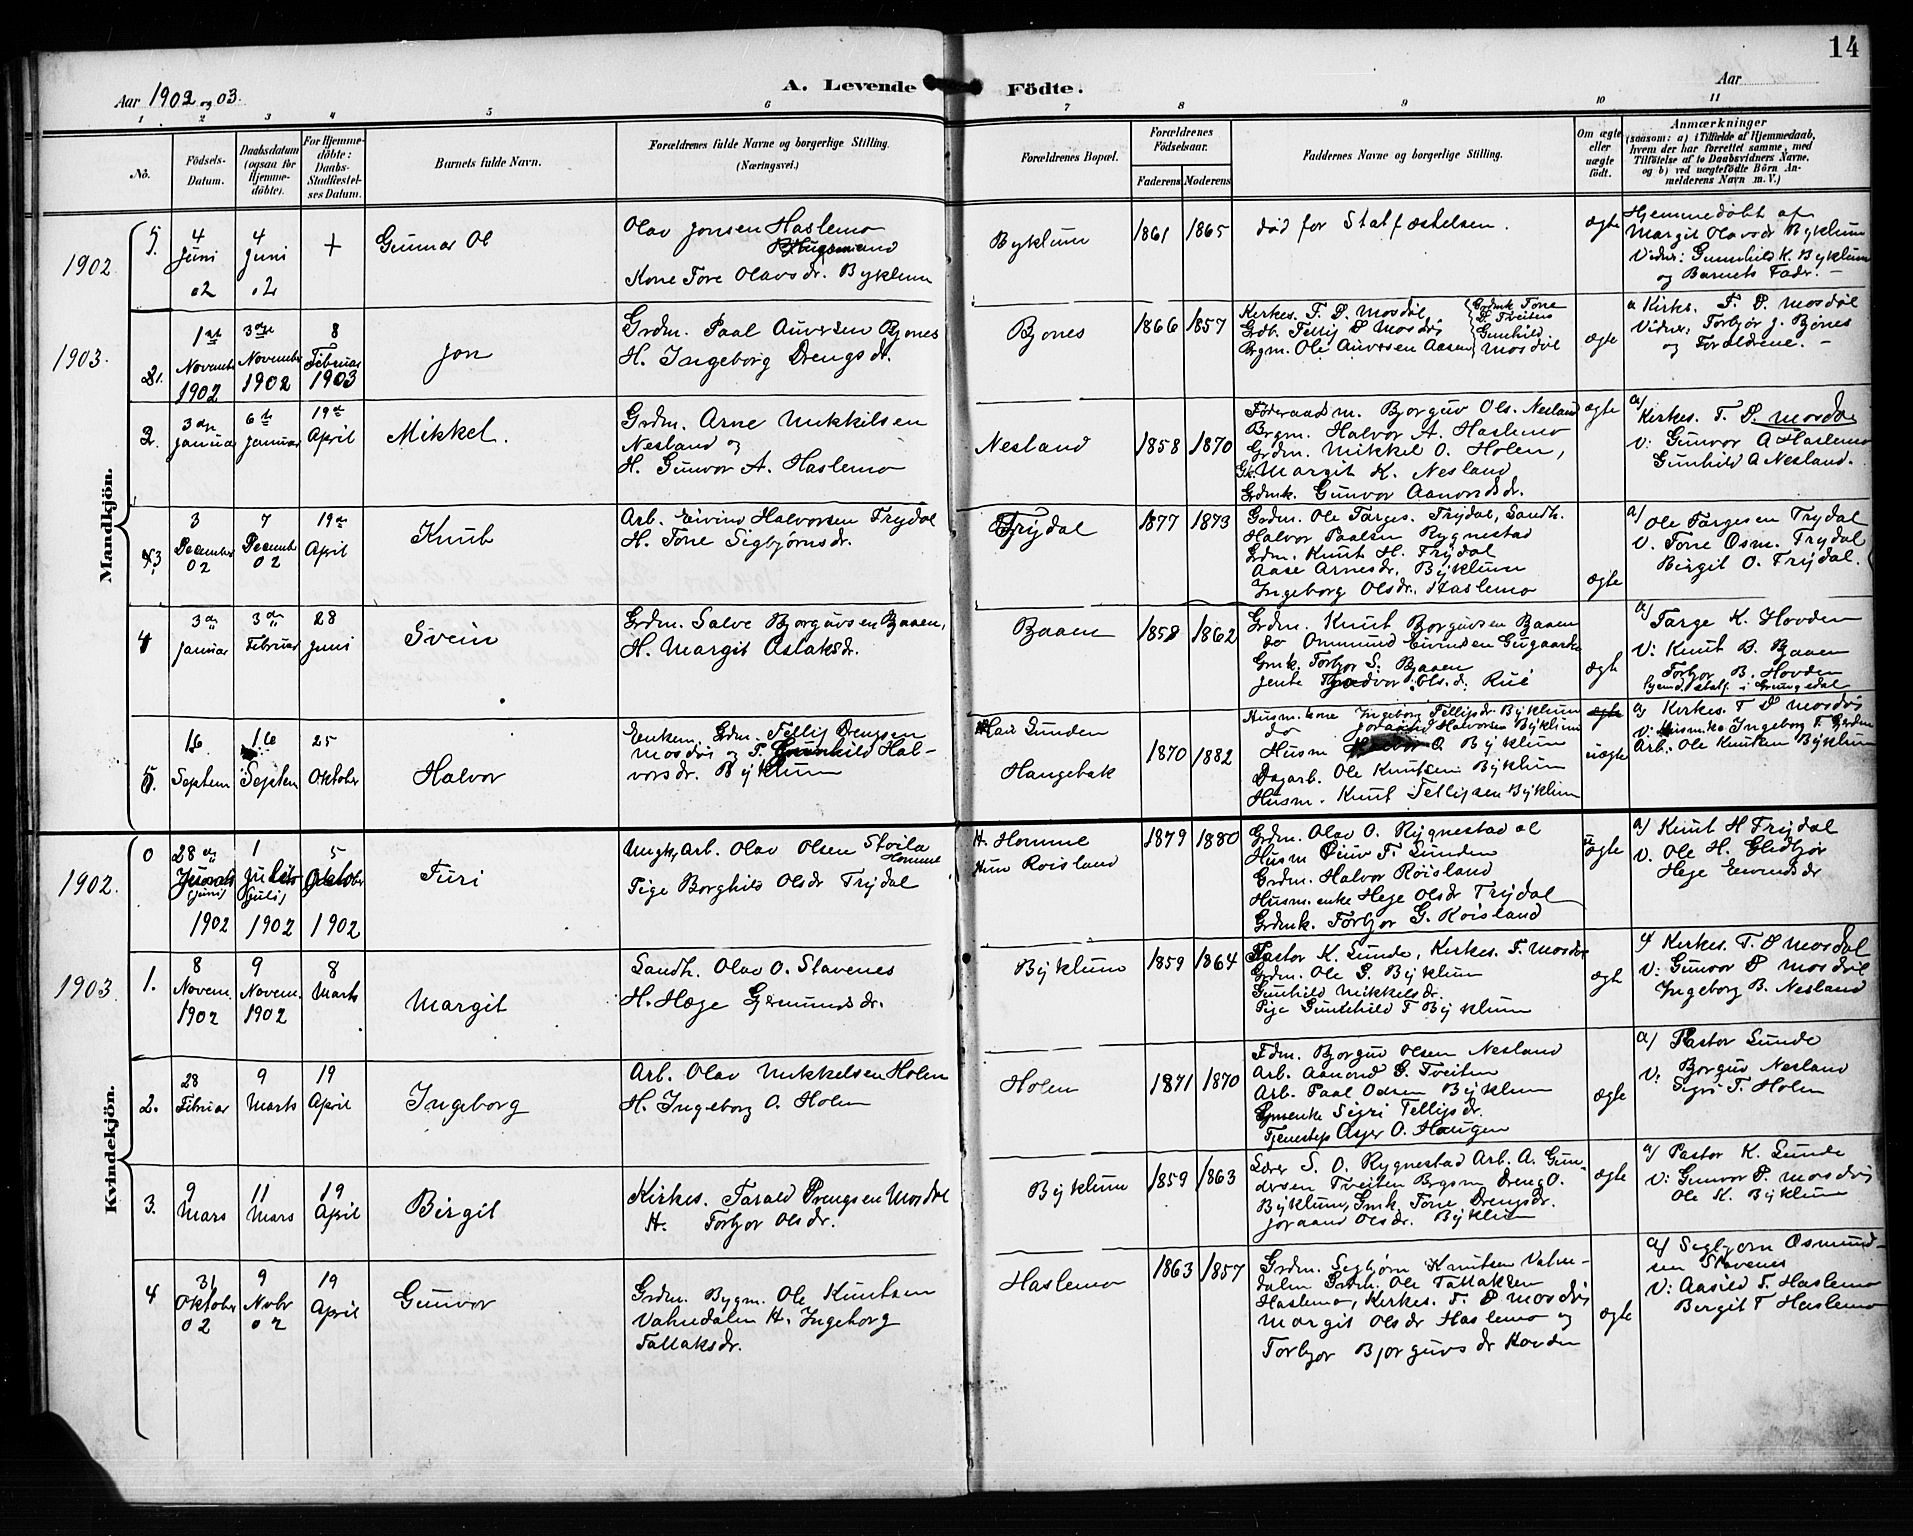 14
Aar 1902 og 03.
A. Levende Födte.
Aar
1. 2 3 4 5 6 7 8 9 10 11
No.
Födsels-Datum.
Daabsdatum (ogsaa for Hjemme-döbte).
For Hjemme-döbte: Daabs-Stadfæstel-ses Datum.
Barnets fulde Navn.
Forældrenes fulde Navne og borgerlige Stilling.
(Næringsvei.)
Forældrenes Bopæl.
Forældrenes Födselsaar.
Faderens Moderens
Faddernes Navne og borgerlige Stilling.
Om ægte eller uægte födt.
Anmærkninger
(saasom: a) i Tilfælde af Hjemmedaab, hvem der har forrettet samme, med Tilföielse af to Daabsvidners Navne, og b) ved uægtefödte Börn An-melderens Navn m. V.)
Mandkjön.
1902
5. 4 Juni 02
4 Juni 02
+
Gunnar Ol
Olav Jonsen Haslemo
Husmand
Kone Tore Olavsdr. Byklum
Byklum
1861 1865
død før Statfæstelsen.
ægte
Hjemmedøbt af
Margit Olavsdr Byklum
Vidner: Gunnhild K. Byklum
og Barnets Fader. —
1903.
1. 1ste November 1902
3die November 1902
8 Februar 1903
Jon
Grdm. Paal Auversen Bjones
H. Ingeborg Drengsdr.
Bjones
1866 1857
Kirkes. T. D. Mosdøl
Gdb. Tellif D Mosdøl
Brgm. Ole Auversen Aasen
Grdmk Tone
D Tveiten
Gunhild
Mosdøl
ægte
a Kirkes. T. D. Mosdøl
Vidner, Torbjør J. Bjones
og Forældrene. —
2. 3die Januar
6te Januar
19de April
Mikkel.
Grdm. Arne Mikkilsen
Nesland og
H. Gunvor A. Haslemo
Nesland
1858 1870
Føderaadsm. Bjorguv Ols. Nesland
Brgm. Halvor A. Haslemo
Grdm. Mikkel O. Holen,
Gk. Margit K. Nesland
Grdmk. Gunvor Aanundsdr.
ægte
a/
Kirkes. T. D. Mosdøl
V: Gunvor A Haslemo
Gunhild A Nesland.
3. 3 December 02
7 December 02
19de April
Knut
Arb. Eivind Halvorsen Trydal
H. Tone Sigbjørnsdr.
Trydal
1877 1873
Grdm. Ole Targes. Trydal, Sandh.
Halvor Paalsen Rygnestad
Grdm. Knut H. Trydal
Aase Arnesdr. Byklum
Ingeborg Olsdr. Haslemo
ægte
a/ Ole Targesen Trydal
V. Tone Osm. Trydal
Birgit O. Trydal.
4 3die Januar
3die Februar
28 Juni
Svein
Grdm. Salve Bjorguvsen Baaen,
H. Margit Aslaksdr.
Baaen
1858 1862
Grdm. Knut Borguvsen Baaen
do Ommund Eivindsen Gugaarde
Gmk. Torbjor S. Baaen
Jente Ols.d. Rui
ægte
a/
Targe K. Hovden
V: Knut B. Baaen
Torbjor B. Hovden
5. 16 Septem
16 Septem
25 Oktober
Halvor
Enkem. Grdm. Tellif Drengsen
Mosdøl og P. Gunhild Hal-
vorsdr. Byklum
Han Sunden
Haugebak
1870 1882
Husm. kone Ingeborg Tellifsdr. Byklum
do Joraand Halvorsdr Byklum
Husm O Byklum
Dagarb. Ole Knutsen Byklum
Husm. Knut Tellifsen Byklum
uægte
a/ Kirkes. T D Mosdøl
V: Husmko Ingeborg T. Gjerden
Arb. Ole Knutsen Byklum
Kvindekjön.
1902.
0 28de Juni 1902
1 Juli 1902
5 Oktober 1902
Turi
Ungk, Arb. Olav Olsen Støila
Homme
Pige Borghild Olsdr Trydal
H. Homme
Hun Røisland
1879 1880
Grdm. Olav O. Rygnestad al
Husm Eiuv T. Sunden
Grdm. Halvor Røisland
Husm. enke Hege Olsdr Trydal
Grdmk. Torbjor G. Røisland
uægte
a/ Knut H Trydal
V. Ole H. Glidbjør
Hege Eivindsdr
1903
1. 8 Novem. 1902
9 Novem. 1902
8 Marts
Margit
Sandh. Olav O. Stavenes
H. Hæge Germundsdr.
Byklum
1859 1864
Pastor K. Sunde, Kirkes. T. Mosdøl
Grdm. Ole G. Byklum
Gunhild Mikkelsdr.
Pige Gunhild T Byklum
ægte
Kirkes. T. D Mosdøl
V: Gunvor D Mosdøl
Ingeborg B. Nesland
2. 28 Februar
9 Marts
19 April
Ingeborg
Arb. Olav Mikkelsen Holen
H. Ingeborg O. Holen
Holen
1871 1870
Fdm. Bjorguv Olsen Nesland
Arb. Aanond G. Tveiten
Arb. Paal Olsen Byklum
Gmenke Sigri Tellifsdr.
Tjenestep Asjer O. Haugen
ægte
a/ Pastor Sunde
V: Borguv Nesland
Sigri T. Holen
3. 9 Mars
11 Mars
19 April
Birgit
Kirkes. Tarald Drengsen Mosdøl
H. Torbjor Olsdr.
Byklum
1859 1863
Lærer S. O. Rygnestad Arb. A. Gun-
dersen Tveiten Brgsm Dreng O.
Byklum, Gmk. Tone Drengsdr.
Joraand Olsdr. Byklum
ægte
a/ Pastor K. Sunde
V: Gunvor D. Mosdøl
Ole K. Byklum
4 31 Oktober 02
9 Nvbr 02
19 April
Gunvor
Grdm. Bygm. Ole Knutsen
Vatnedalen H. Ingeborg
Tallaksdr.
Haslemo
1863 1857
Grdm. Sigbjørn Knutsen Vatne-
dalen Grdm. Ole Tallaksen
Haslemo, Kirkes. T. D Mosdøl
Margit Olsdr Haslemo og
Torbjor Bjorguvsdr Hovden
ægte
a/ Sigbjorn Osmund-
sen Stavenes
V: Aasild T. Haslemo
Bergit T Haslemo